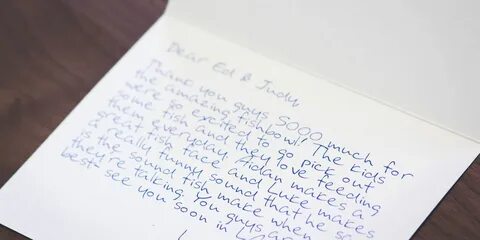 Dear Ed & Judy,
Thank you guys SOOO much for
the amazing fishbowl! The kids
were so excited to go pick out
some fish and they love feeding
them everyday. Aidan makes a
great fish face and Luke makes
is really funny sound that he says
they're the sound fish make when
talking. You guys are
best see you soon in